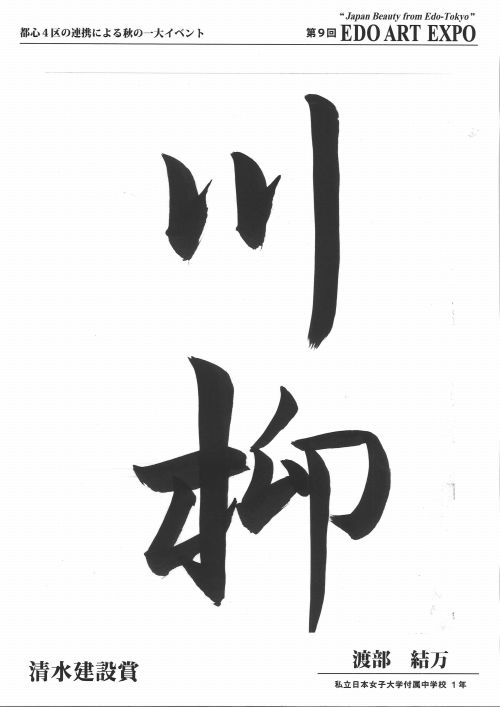 都心4区の連携による秋の一大イベント
"Japan Beauty from Edo-Tokyo"
第9回 EDO ART EXPO
川柳
清水建設賞
渡部 結万
私立日本女子大学付属中学校 1年